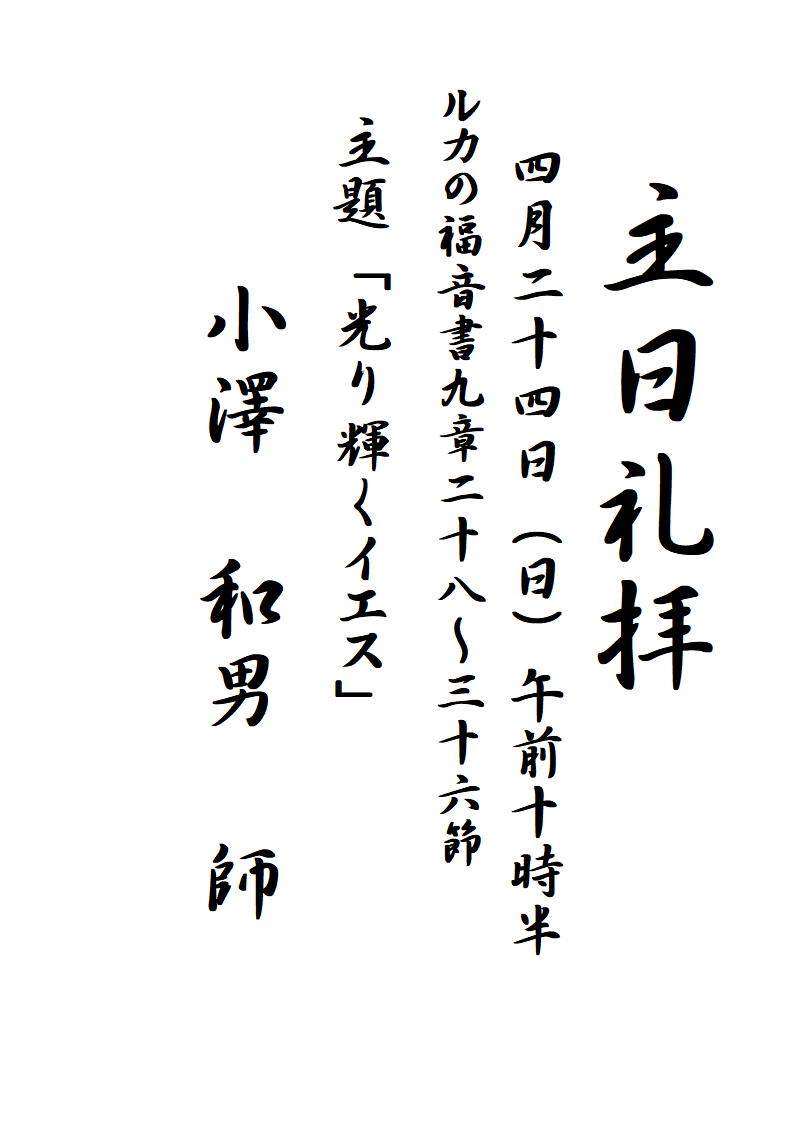 主日礼拝
四月二十四日（日）午前十時半
ルカの福音書九章二十八～三十六節
主題「光り輝くイエス」
小澤　和男　師